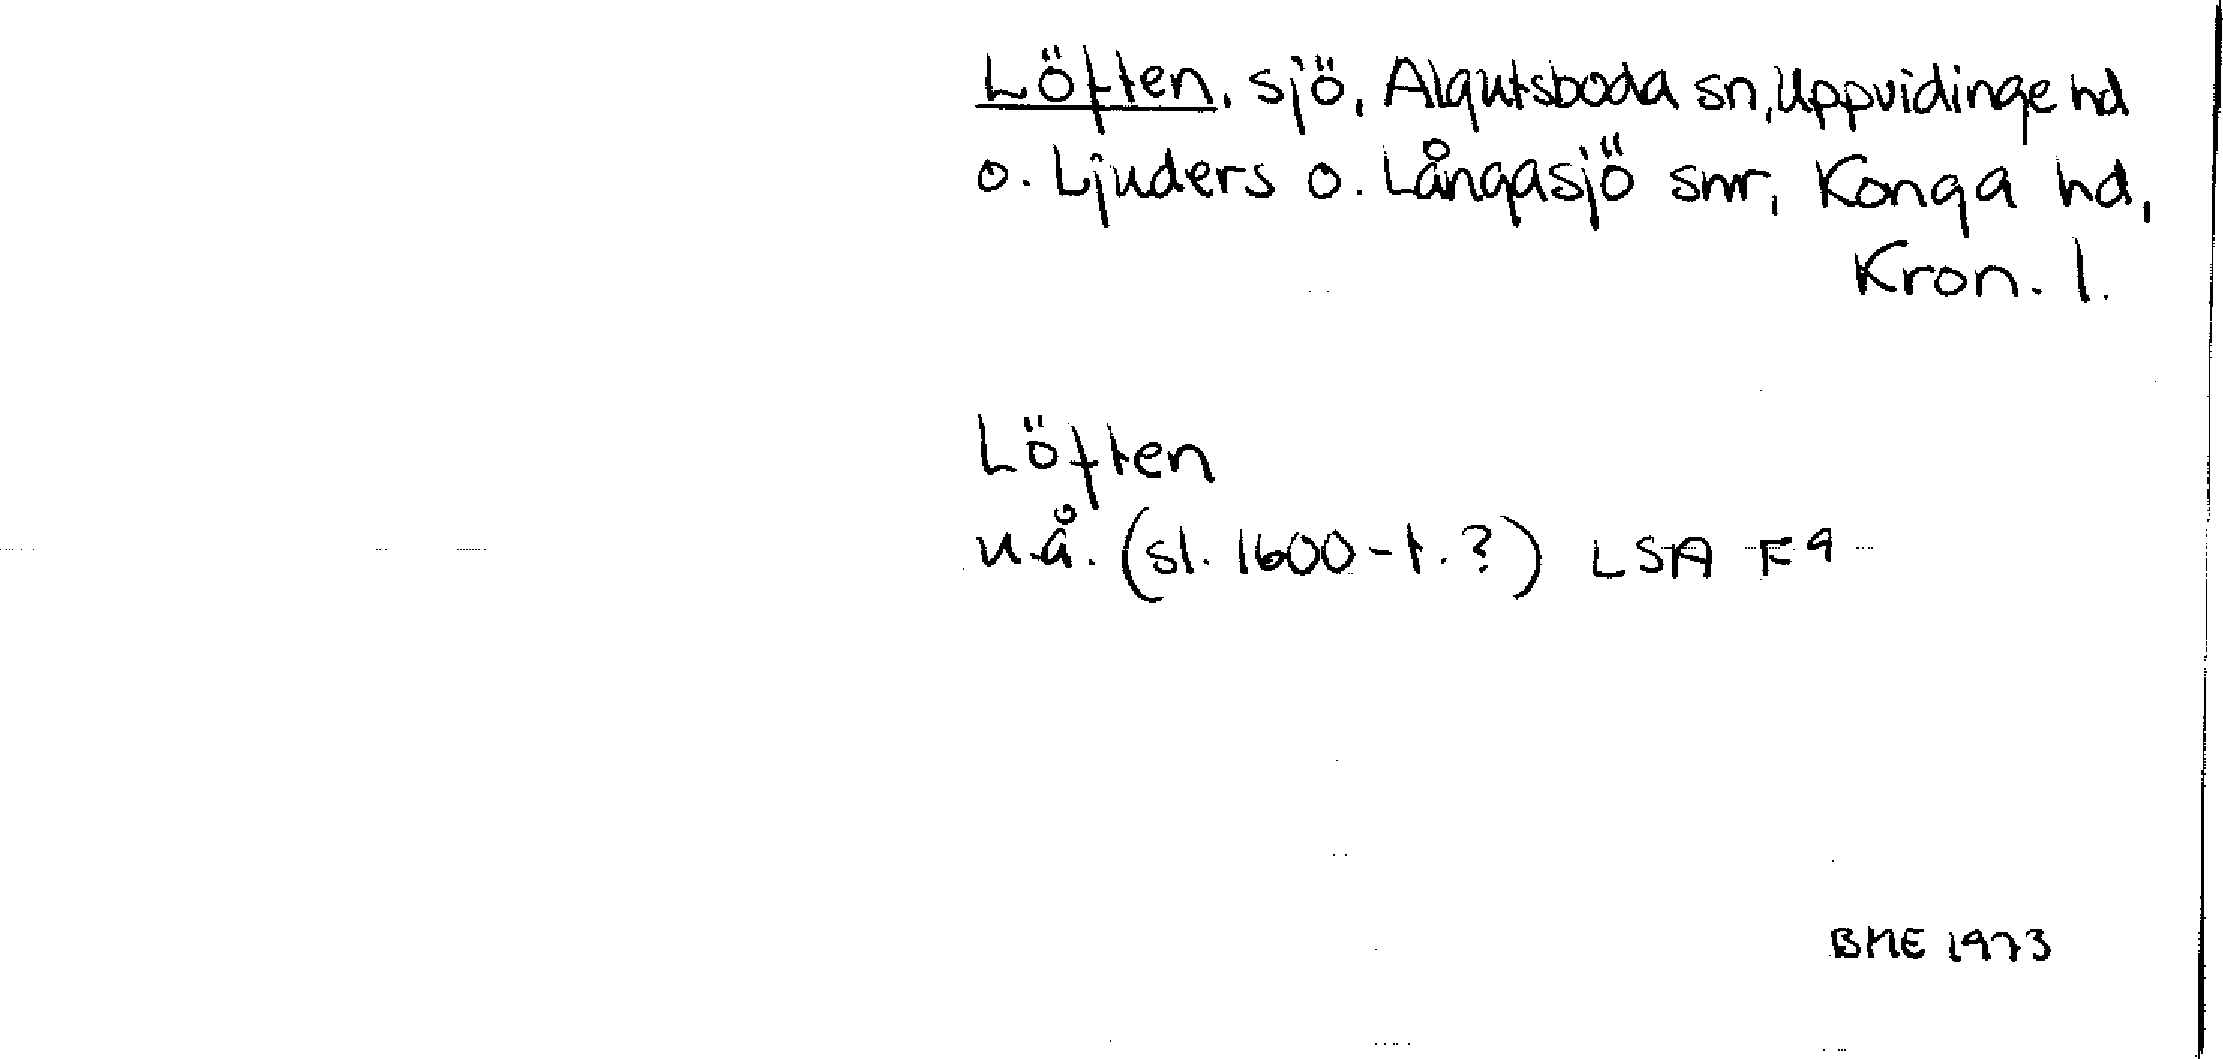 Löften, sjö, Algutsboda sn, Uppvidinge hd
o. Ljuders o. Långasjö snr, Konga hd,
Kron. l.
Löften
u.å. (sl. 1600-t.?) LSA F9
BME 1973